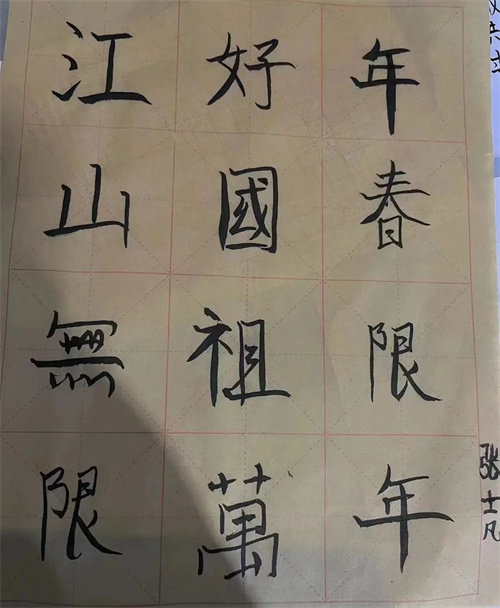 江山無限
好國祖萬
年春限年
张士凡